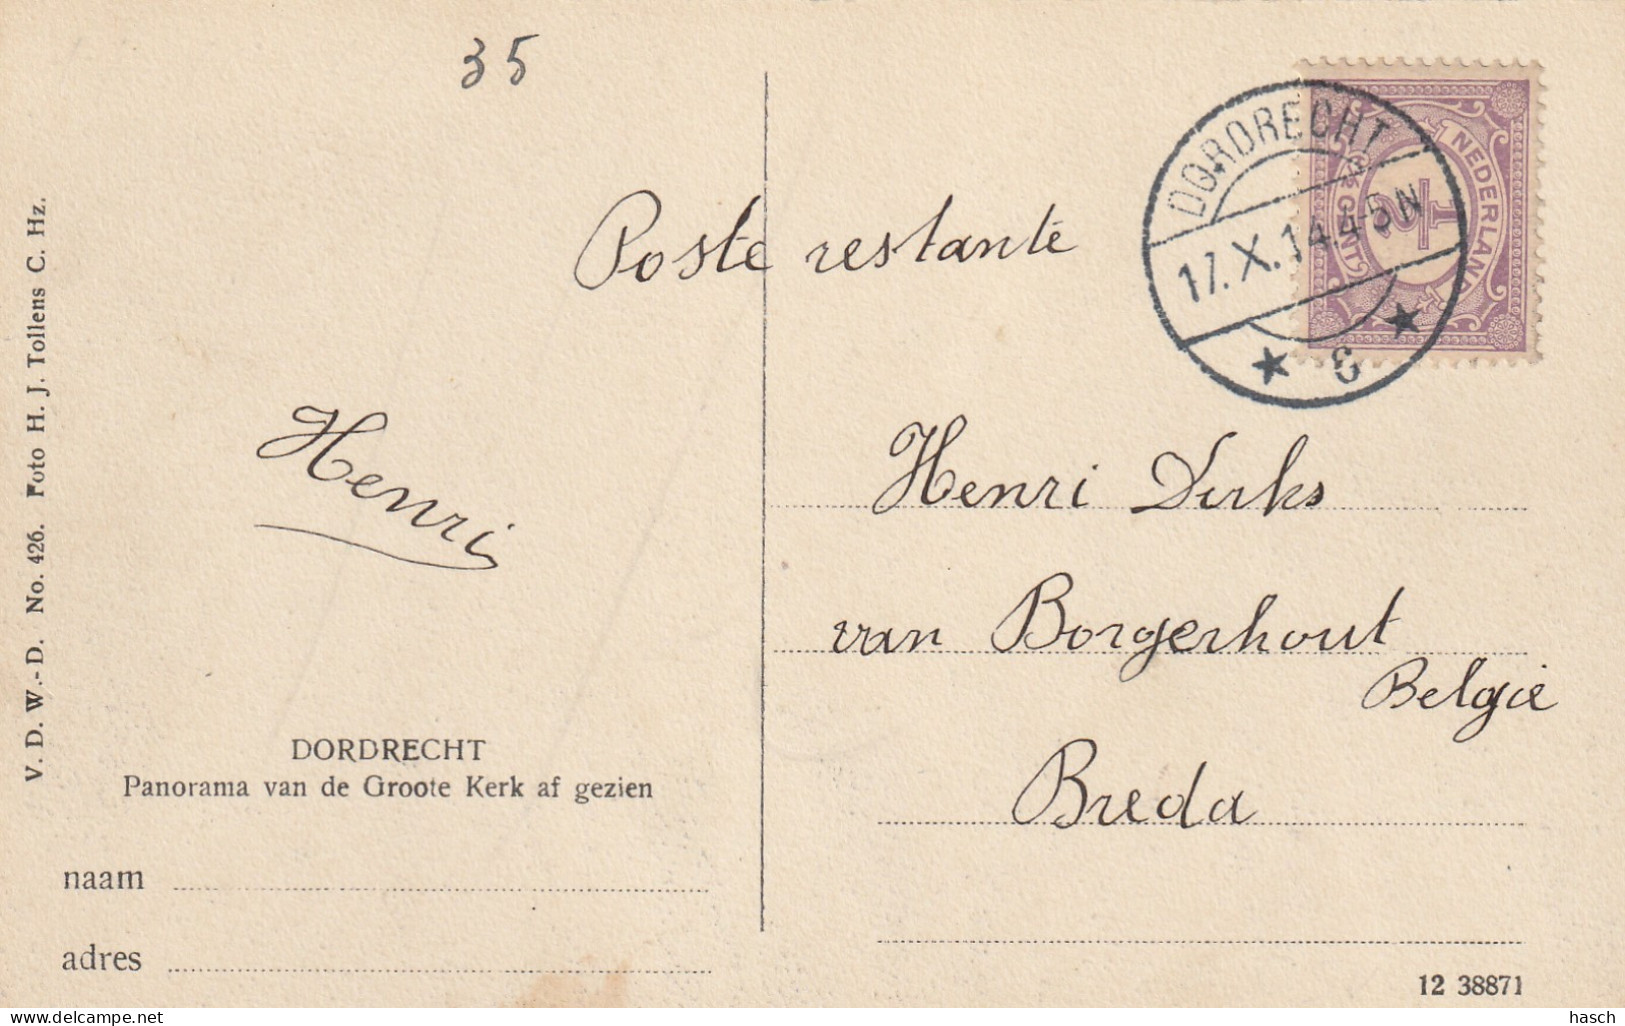 35
DORDRECHT
17.X.14.4-5N
3
NEDERLAND
1/2
1/2 CENT
Poste restante
Henri
Henri Dirks
van Borgerhout
Belgie
Breda
V. D. W.-D. No. 426. Foto H. J. Tollens C. Hz.
DORDRECHT
Panorama van de Groote Kerk af gezien
naam
adres
12 38871
delcampe.net
hasch